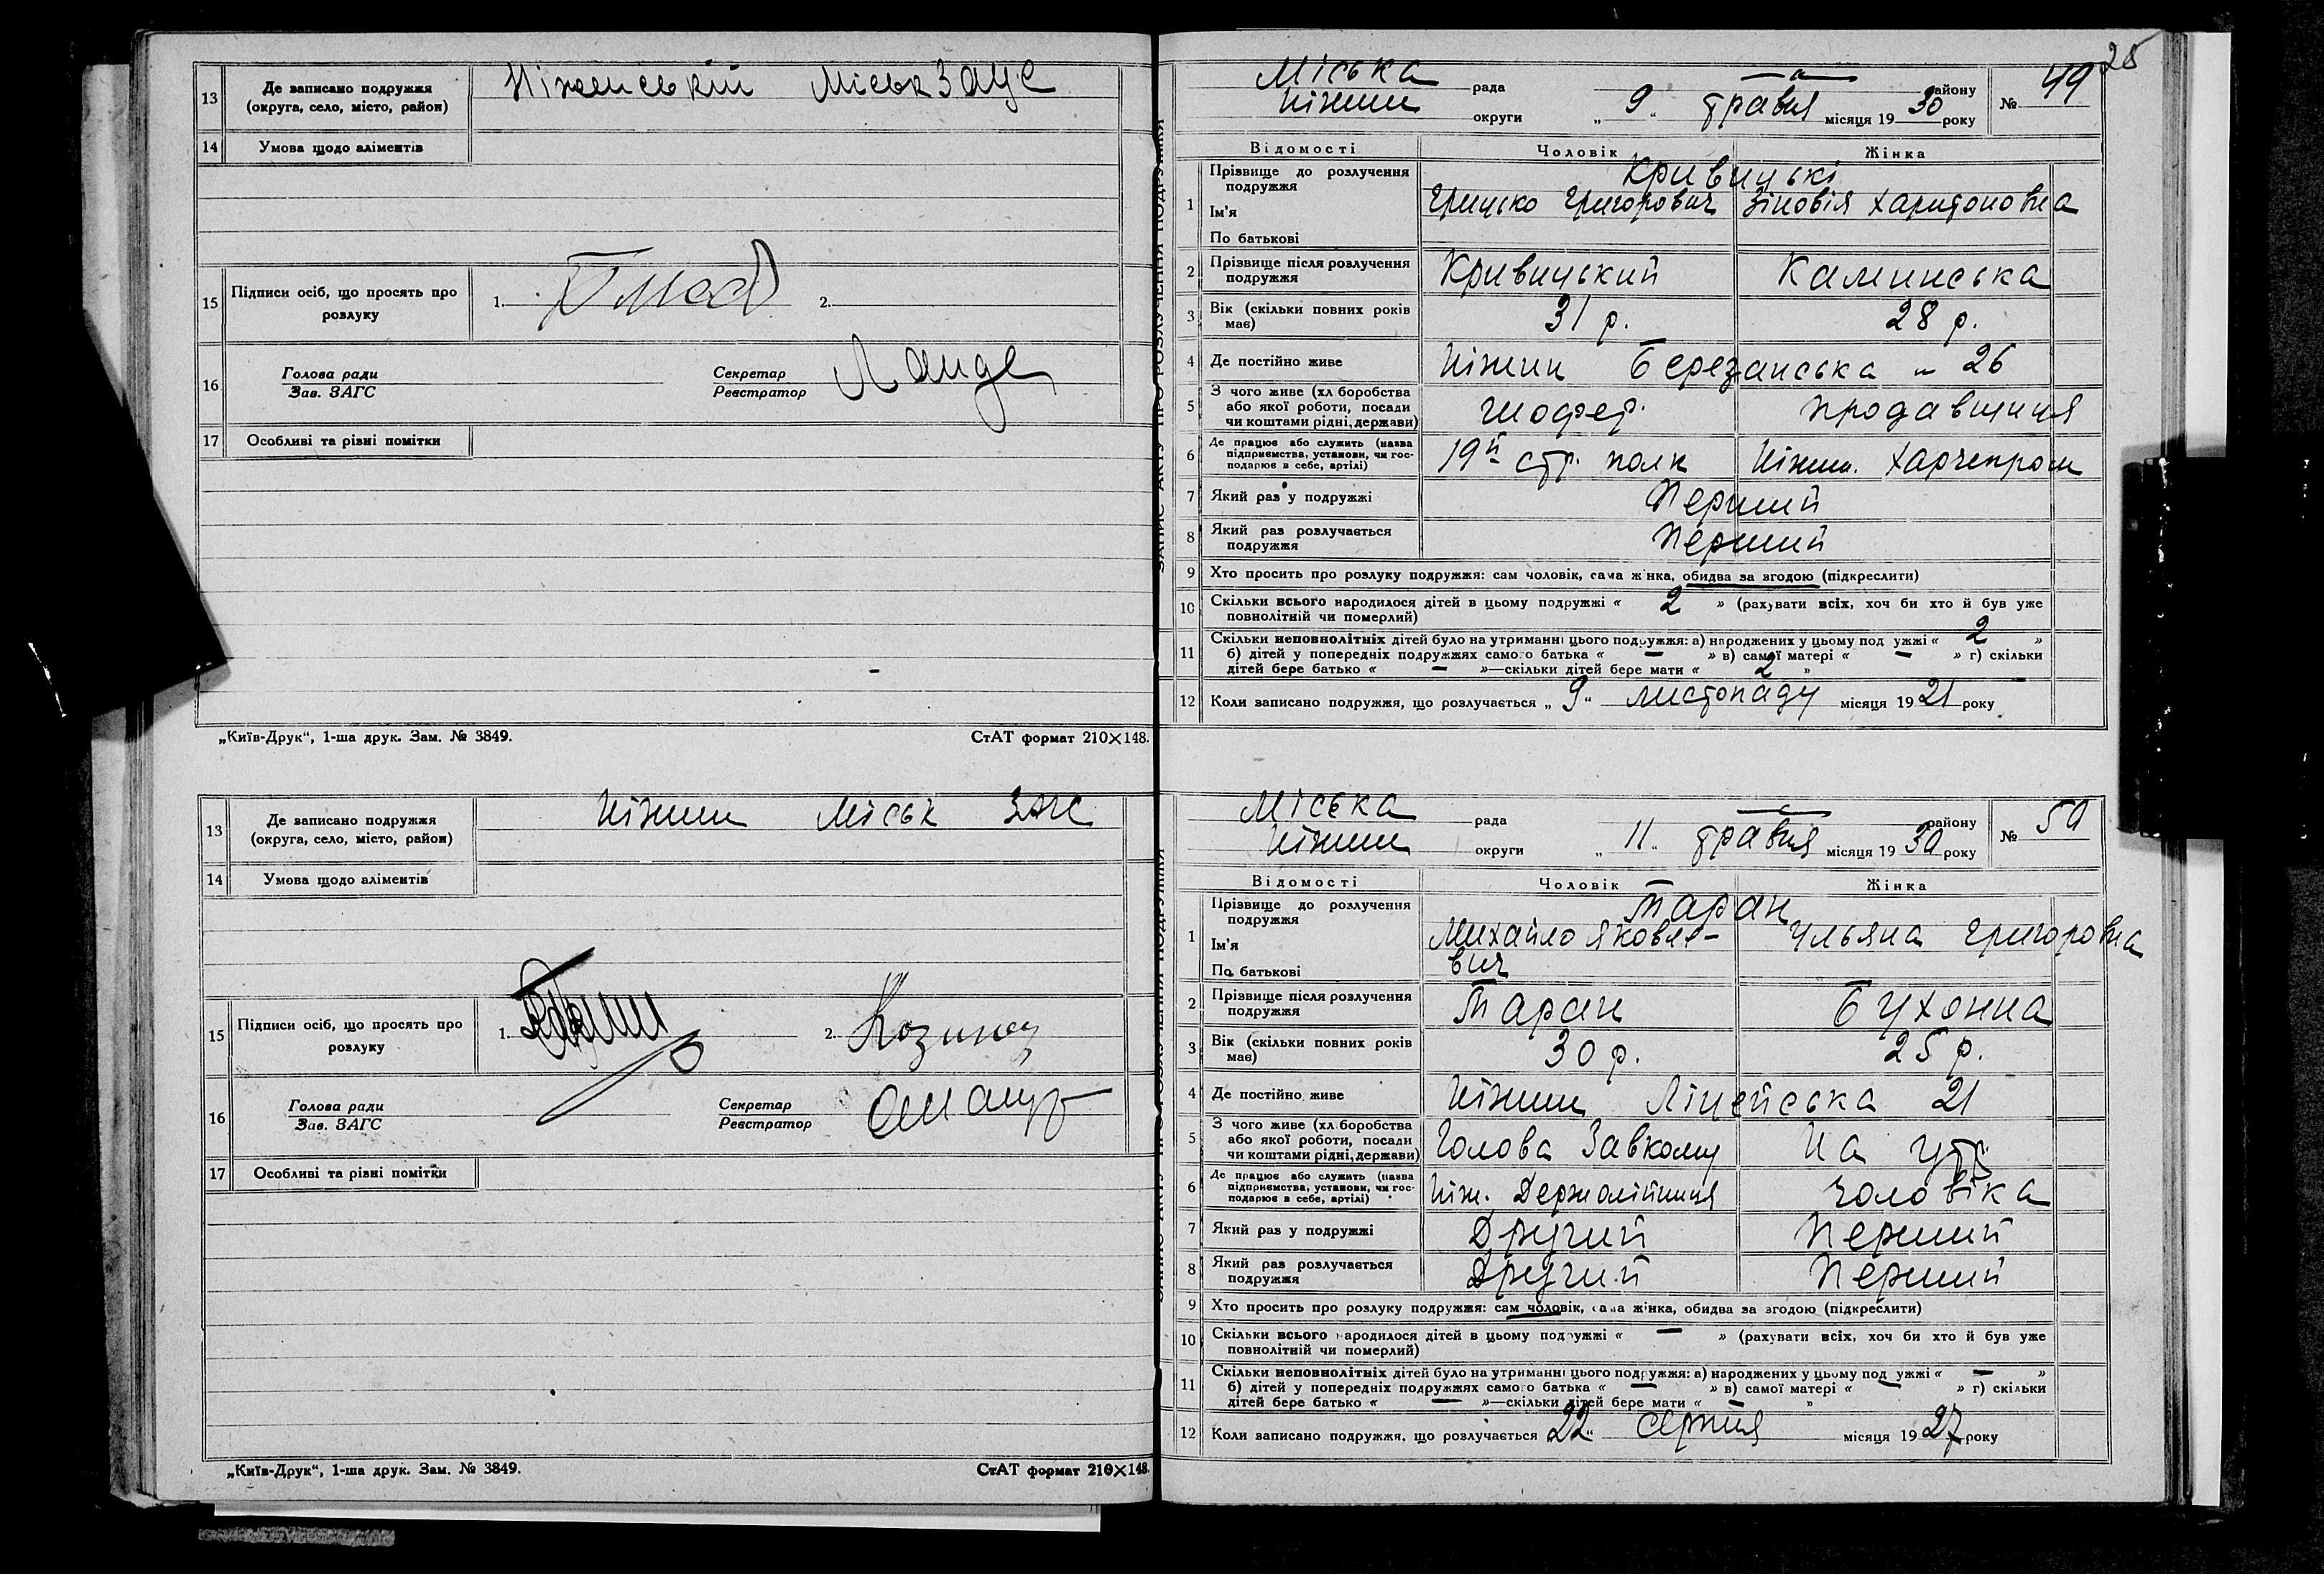 13 Де записано подружжя (округа, село, місто, район) Ніженській МіськЗАГС
14 Умова щодо аліментів
15 Підписи осіб, що просять про розлуку 1. 2.
16 Голова ради Зав. ЗАГС Секретар Реєстратор
17 Особливі та різні помітки
„Київ-Друк“, 1-ша друк. Зам. № 3849. СтАТ формат 210×148.
13 Де записано подружжя (округа, село, місто, район) Ніжин Міськ ЗАГС
14 Умова щодо аліментів
15 Підписи осіб, що просять про розлуку 1. 2.
16 Голова ради Зав. ЗАГС Секретар Реєстратор
17 Особливі та рівні помітки
„Київ-Друк“, 1-ша друк. Зам. № 3849. СтАТ формат 210×148.
25
Міська рада району № 49
Ніжин округи „ 9 “ травня місяця 19 30 року
Відомості Чоловік Жінка
1 Прізвище до розлучення подружжя Кривицькі
Ім'я Грицько Григорович Зіновія Харитоновна
По батькові
2 Прізвище після розлучення подружжя Кривицький Каминська
3 Вік (скільки повних років має) 31 р. 28 р.
4 Де постійно живе Ніжин Березанська 26
5 З чого живе (хл боробства або якої роботи, посади чи коштами рідні, держави) шофер. продавщиця
6 Де працює або служить (назва підприємства, установи, чи господарює в себе, артілі) 19й стр. полк Ніжин. Харчепром
7 Який раз у подружжі Перший
8 Який раз розлучається подружжя Перший
9 Хто просить про розлуку подружжя: сам чоловік, сама жінка, обидва за згодою (підкреслити)
10 Скільки всього народилося дітей в цьому подружжі « 2 » (рахувати всіх, хоч би хто й був уже повнолітній чи померлий)
11 Скільки неповнолітніх дітей було на утриманні цього подружжя: а) народжених у цьому подружжі « 2 »
б) дітей у попередніх подружжях самого батька « — » в) самої матері « — » г) скільки
дітей бере батько « — »—скільки дітей бере мати « 2 »
12 Коли записано подружжя, що розлучається „ 9 “ листопаду місяця 19 21 року
ЗАПИС АКТУ ПРО РОЗЛУЧЕННЯ ПОДРУЖЖЯ
Міська рада району № 50
Ніжин округи „ 11 “ травня місяця 19 30 року
Відомості Чоловік Жінка
1 Прізвище до розлучення подружжя Таран
Ім'я Михайло Яковле- Ульяна Григоровна
По батькові вич
2 Прізвище після розлучення подружжя Таран Бухонна
3 Вік (скільки повних років має) 30 р. 25 р.
4 Де постійно живе Ніжин Ліцейська 21
5 З чого живе (хл боробства або якої роботи, посади чи коштами рідні, держави) Голова Завкому На утр.
6 Де працює або служить (назва підприємства, установи, чи господарює в себе, артілі) Ніж. Держолійниця чоловіка
7 Який раз у подружжі Другий Перший
8 Який раз розлучається подружжя Другий Перший
9 Хто просить про розлуку подружжя: сам чоловік, сама жінка, обидва за згодою (підкреслити)
10 Скільки всього народилося дітей в цьому подружжі « — » (рахувати всіх, хоч би хто й був уже повнолітній чи померлий)
11 Скільки неповнолітніх дітей було на утриманні цього подружжя: а) народжених у цьому подружжі « — »
б) дітей у попередніх подружжях самого батька « — » в) самої матері « — » г) скільки
дітей бере батько « — »—скільки дітей бере мати « — »
12 Коли записано подружжя, що розлучається „ 22 “ серпня місяця 19 27 року